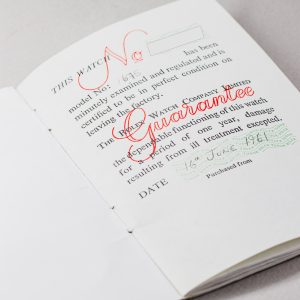 No
THIS WATCH has been
model No: 1675
minutely examined and regulated and is
certified to be in perfect condition on
leaving the factory.
THE ROLEX WATCH COMPANY LIMITED
Guarantee
the dependable functioning of this watch
for a period of one year, damage
resulting from ill treatment excepted.
DATE 16th JUNE 1961
Purchased from